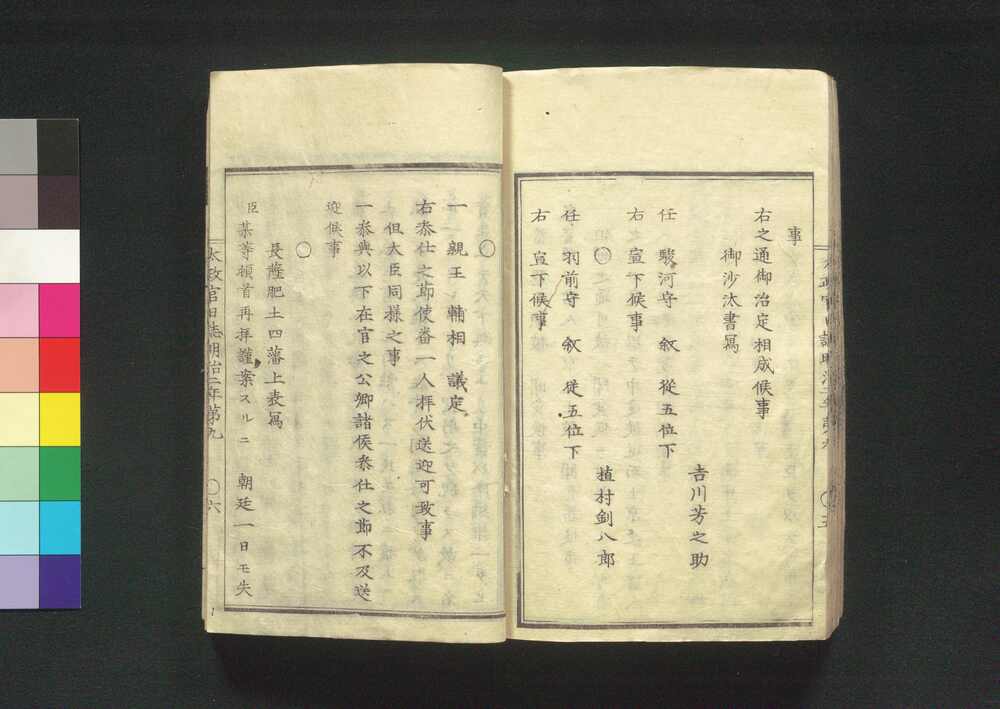 事
右之通御治定相成候事
御沙汰書寫
吉川芳之助
任 駿河守 叙 從五位下
右 宣下候事
〇
植村釗八郎
任 羽前守 叙 從五位下
右 宣下候事
〇
一 親王 輔相 議定
右叅仕之節使番一人拝伏送迎可致事
但大臣同樣之事
一叅與以下在官之公卿諸侯叅仕之節不及送
迎候事
〇
長薩肥土四藩上表寫
臣某等頓首再拝謹案スルニ 朝廷一日モ失
太政官日誌明治二年第九 〇六